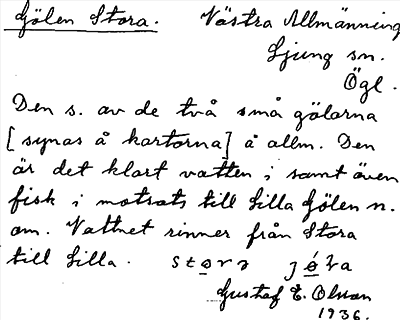 Gölen Stora. Västra Allmänning
Ljung sn.
Ögl.
Den s. av de två små gölarna
[synas å kartorna] å allm. Den
är det klart vatten i samt även
fisk i motsats till Lilla Gölen n.
om. Vattnet rinner från Stora
till Lilla.
Gustaf E. Olson
1936.